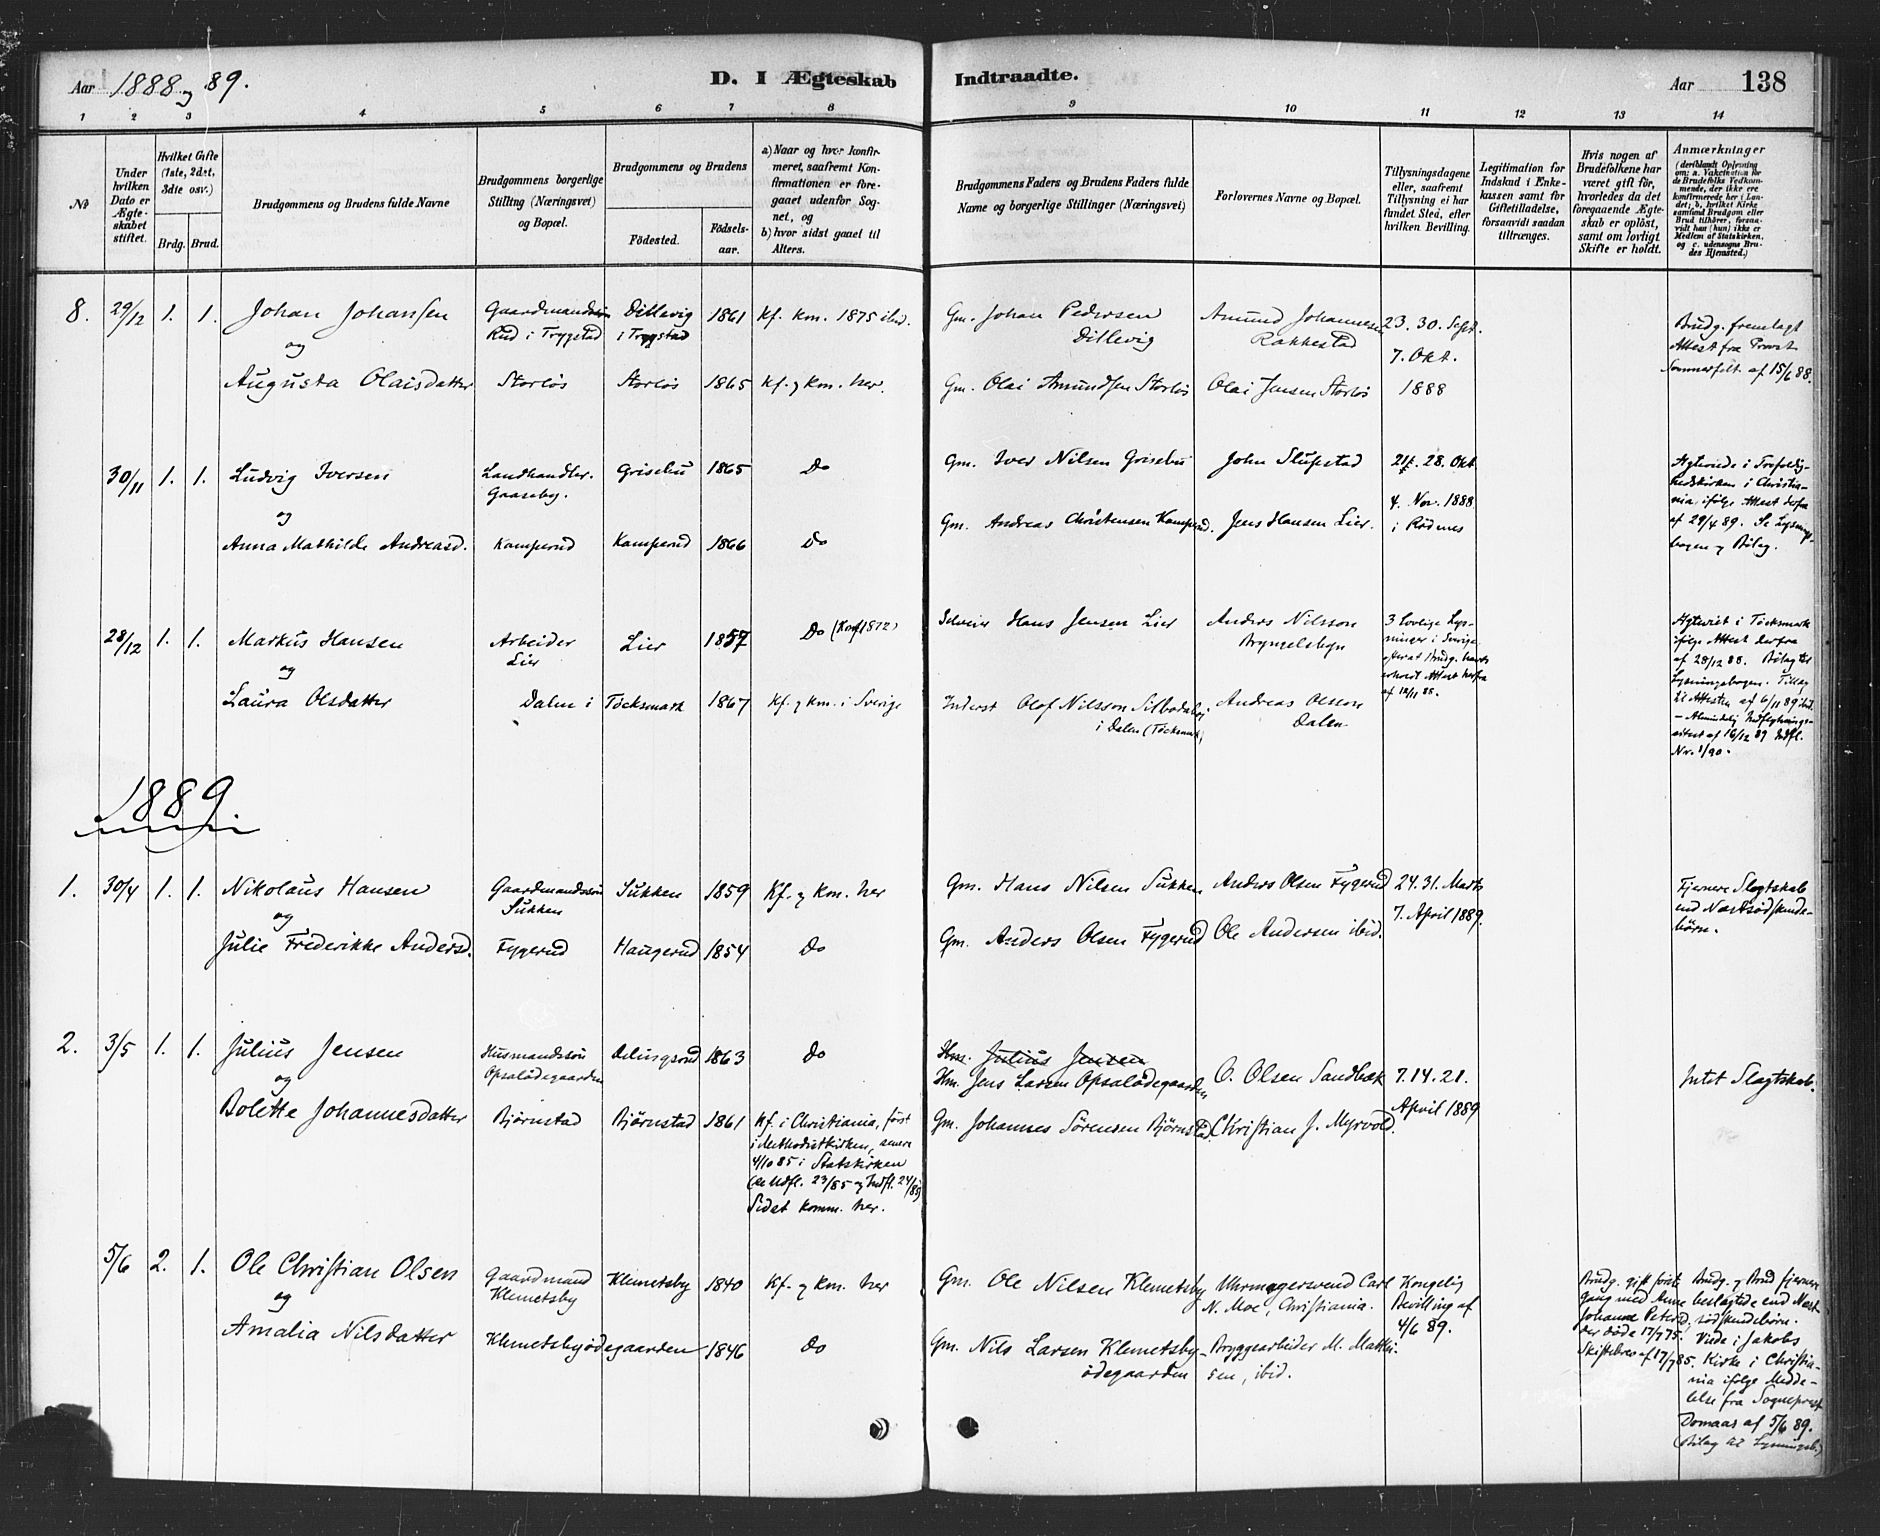 Aar 1888 og 89.
D. I Ægteskab Indtraadte.
Aar 138
1 2 3 4 5 6 7 8 9 10 11 12 13 14
No
Under hvilken Dato er Ægteskabet stiftet.
Hvilket Gifte (1ste, 2det, 3die osv.)
Brdg. Brud.
Brudgommens og Brudens fulde Navne
Brudgommens borgerlige Stilling (Næringsvei) og Bopæl.
Brudgommens og Brudens
Födested.
Födsels-aar.
a) Naar og hvor konfirmeret, saafremt Konfirmationen er foregaaet udenfor Sognet, og
b) hvor sidst gaaet til Alters.
Brudgommens Faders og Brudens Faders fulde Navne og borgerlige Stillinger (Næringsvei)
Forlovernes Navne og Bopæl.
Tillysningsdagene eller, saafremt Tillysning ei har fundet Sted, efter hvilken Bevilling.
Legitimation for Indskud i Enkekassen samt for Giftetilladelse, forsaavidt saadan tiltrænges.
Hvis nogen af Brudefolkene har været gift för, hvorledes da det foregaaende Ægteskab er oplöst, samt om lovligt Skifte er holdt.
Anmærkninger
(deriblandt Oplysning om: a. Vakcination for de Brudefolks Vedkommende, der ikke ere konfirmerede her i Landet; b. hvilket Kirkesamfund Brudgom eller Brud tilhörer, forsaavidt han (hun) ikke er Medlem af Statskirken, og c. udensogns Brudes Hjemsted.)
8. 29/12 1. 1. Johan Johansen Gaardmandssön Dillevig 1861 Kf. kom. 1875 ibid. Gm. Johan Pedersen Amund Johannesen 23. 30. Sept.
og Rud i Trygstad i Trygstad Dillevig Rakkestad 7. Okt.
Augusta Olaisdatter Storløs Storløs 1865 Kf. og kom. her. Gm. Olai Amundsen Storløs Olai Jensen Storløs 1888
Brudg. fremlagt
Attest fra Provst
Sommerfelt af 15/6 88.
30/11 1. 1. Ludvig Iversen Landhandler. Grisebu 1865 Do Gm. Iver Nilsen Grisebu John Slupstad 21. 28. Okt.
og Gaaseby. 4. Nov. 1888
Anna Mathilde Andreasd. Kamperud Kamperud 1866 Do Gm. Andreas Christensen Kamperud. Jens Hansen Lier. i Rödenes
Ægteviede i Trefoldig-
hedskirken i Christia-
nia ifølge Attest derfra
af 29/4 89. Se Lysnings-
bogen og Bilag.
28/12 1. 1. Markus Hansen Arbeider Lier 1857 Do (Konf 1872) Selveier Hans Jensen Lier Anders Nilsson
og Lier
Laura Olsdatter Dalen i Töcksmark 1867 Kf. og kom. i Sverige Inderst Olof Nilsson Andreas Olsson
i Dalen (Töcksmark) Dalen
3 lovlige Lys-
ninger i Sverige
efterat Brudg. havde
erholdt Attest herfra
af 12/11 88.
Ægteviet i Töcksmark
ifølge Attest derfra
af 28/12 88. Bilag til
Lysningsbogen. Tillæg
til Attesten af 6/11 89 ibid.
- Almindelig Indflytnings-
attest af 16/12 89 Indfl.
Nr. 1/90.
1889.
1. 30/4 1. 1. Nikolaus Hansen Gaardmandssön Sukken 1859 Kf. og kom. her Gm. Hans Nilsen Sukken Anders Olsen Fygerud 24. 31. Marts
og Sukken 7. April 1889.
Julie Frederikke Andersd. Fygerud Haugerud 1854 Do Gm. Anders Olsen Fygerud Ole Andersen ibid.
Fjernere Slægtskab
end Næstsødskende-
børn.
2. 3/5 1. 1. Julius Jensen Husmandssön 1863 Do Hm. Julius Jensen
og Opsalödegaarden Hm. Jens Larsen Opsalödegaarden O. Olsen Sandbæk 7. 14. 21.
Bolette Johannesdatter Bjørnstad Bjørnstad 1861 Gm. Johannes Sørensen Bjørnstad. Christian J. Myrvold. April 1889
Intet Slægtskab.
Kf. i Christiania, først
i Methodistkirken, senere
4/10 85 i Statskirken
(se Udfl. 23/85 og Indfl. 24/89)
Sidst komm. her.
5/6 2. 1. Ole Christian Olsen Gaardmand Klemetsby 1840 Kf. og kom. her Gm. Ole Nilsen Klemetsby Uhrmagersvend Carl Kongelig
og Klemetsby N. Moe, Christiania. Bevilling af
Amalia Nilsdatter Klemetsbyødegaarden 1846 Do Gm. Nils Larsen Klemetsby- Bryggearbeider M. Mathi- 4/6 89.
ødegaarden sen, ibid.
Brudg. gift første
Gang med Anne
Johanne Petersd.,
der døde 17/7 75.
Skiftebrev af 17/7 85.
Brudg. og Brud fjernere
beslægtede end Næst-
sødskendebørn.
Viede i Jakobs
Kirke i Christia-
nia ifølge Medde-
lelse fra Sognepræst
Domaas af 5/6 89.
(Bilag til Lysningsb.)